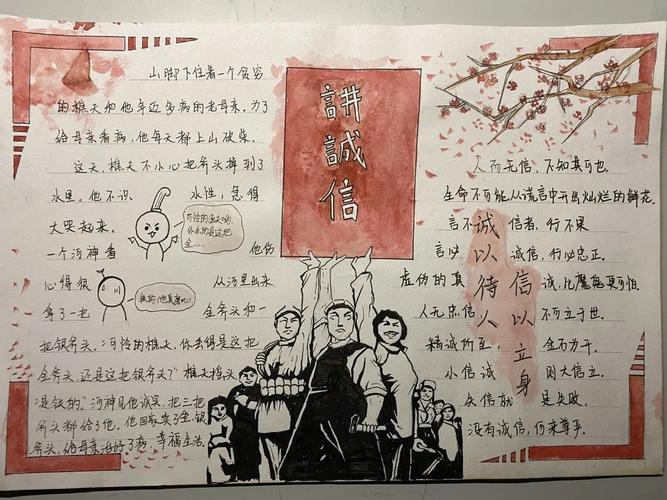 山脚下住着一个贫穷
的樵夫和他年迈多病的老母亲，为了
给母亲看病，他每天都上山砍柴。
这天，樵夫不小心把斧头掉到了
水里。他不识 水性，急得
大哭起来。
一个河神看 他伤
心得很 从河里出来
拿了一把 金斧头和一
把银斧头，“可怜的樵夫，你去得是这把
金斧头，还是这把银斧头？”樵夫摇头
“是铁的。”河神见他诚实，把三把
斧头都给了他，他回家卖了金、银
斧头，给母亲治好了病，幸福生活。
講誠信
人而无信，不知其可也
生命不可能从谎言中开出灿烂的鲜花
言不诚信者，行不果
言必诚信，行必忠正。
虚伪的真诚，比魔鬼更可怕
人无忠信，不可立于世。
精诚所至，金石为开。
小信诚则大信立。
失信就是失败。
没有诚信，何来尊严。
诚以待人
信以立身